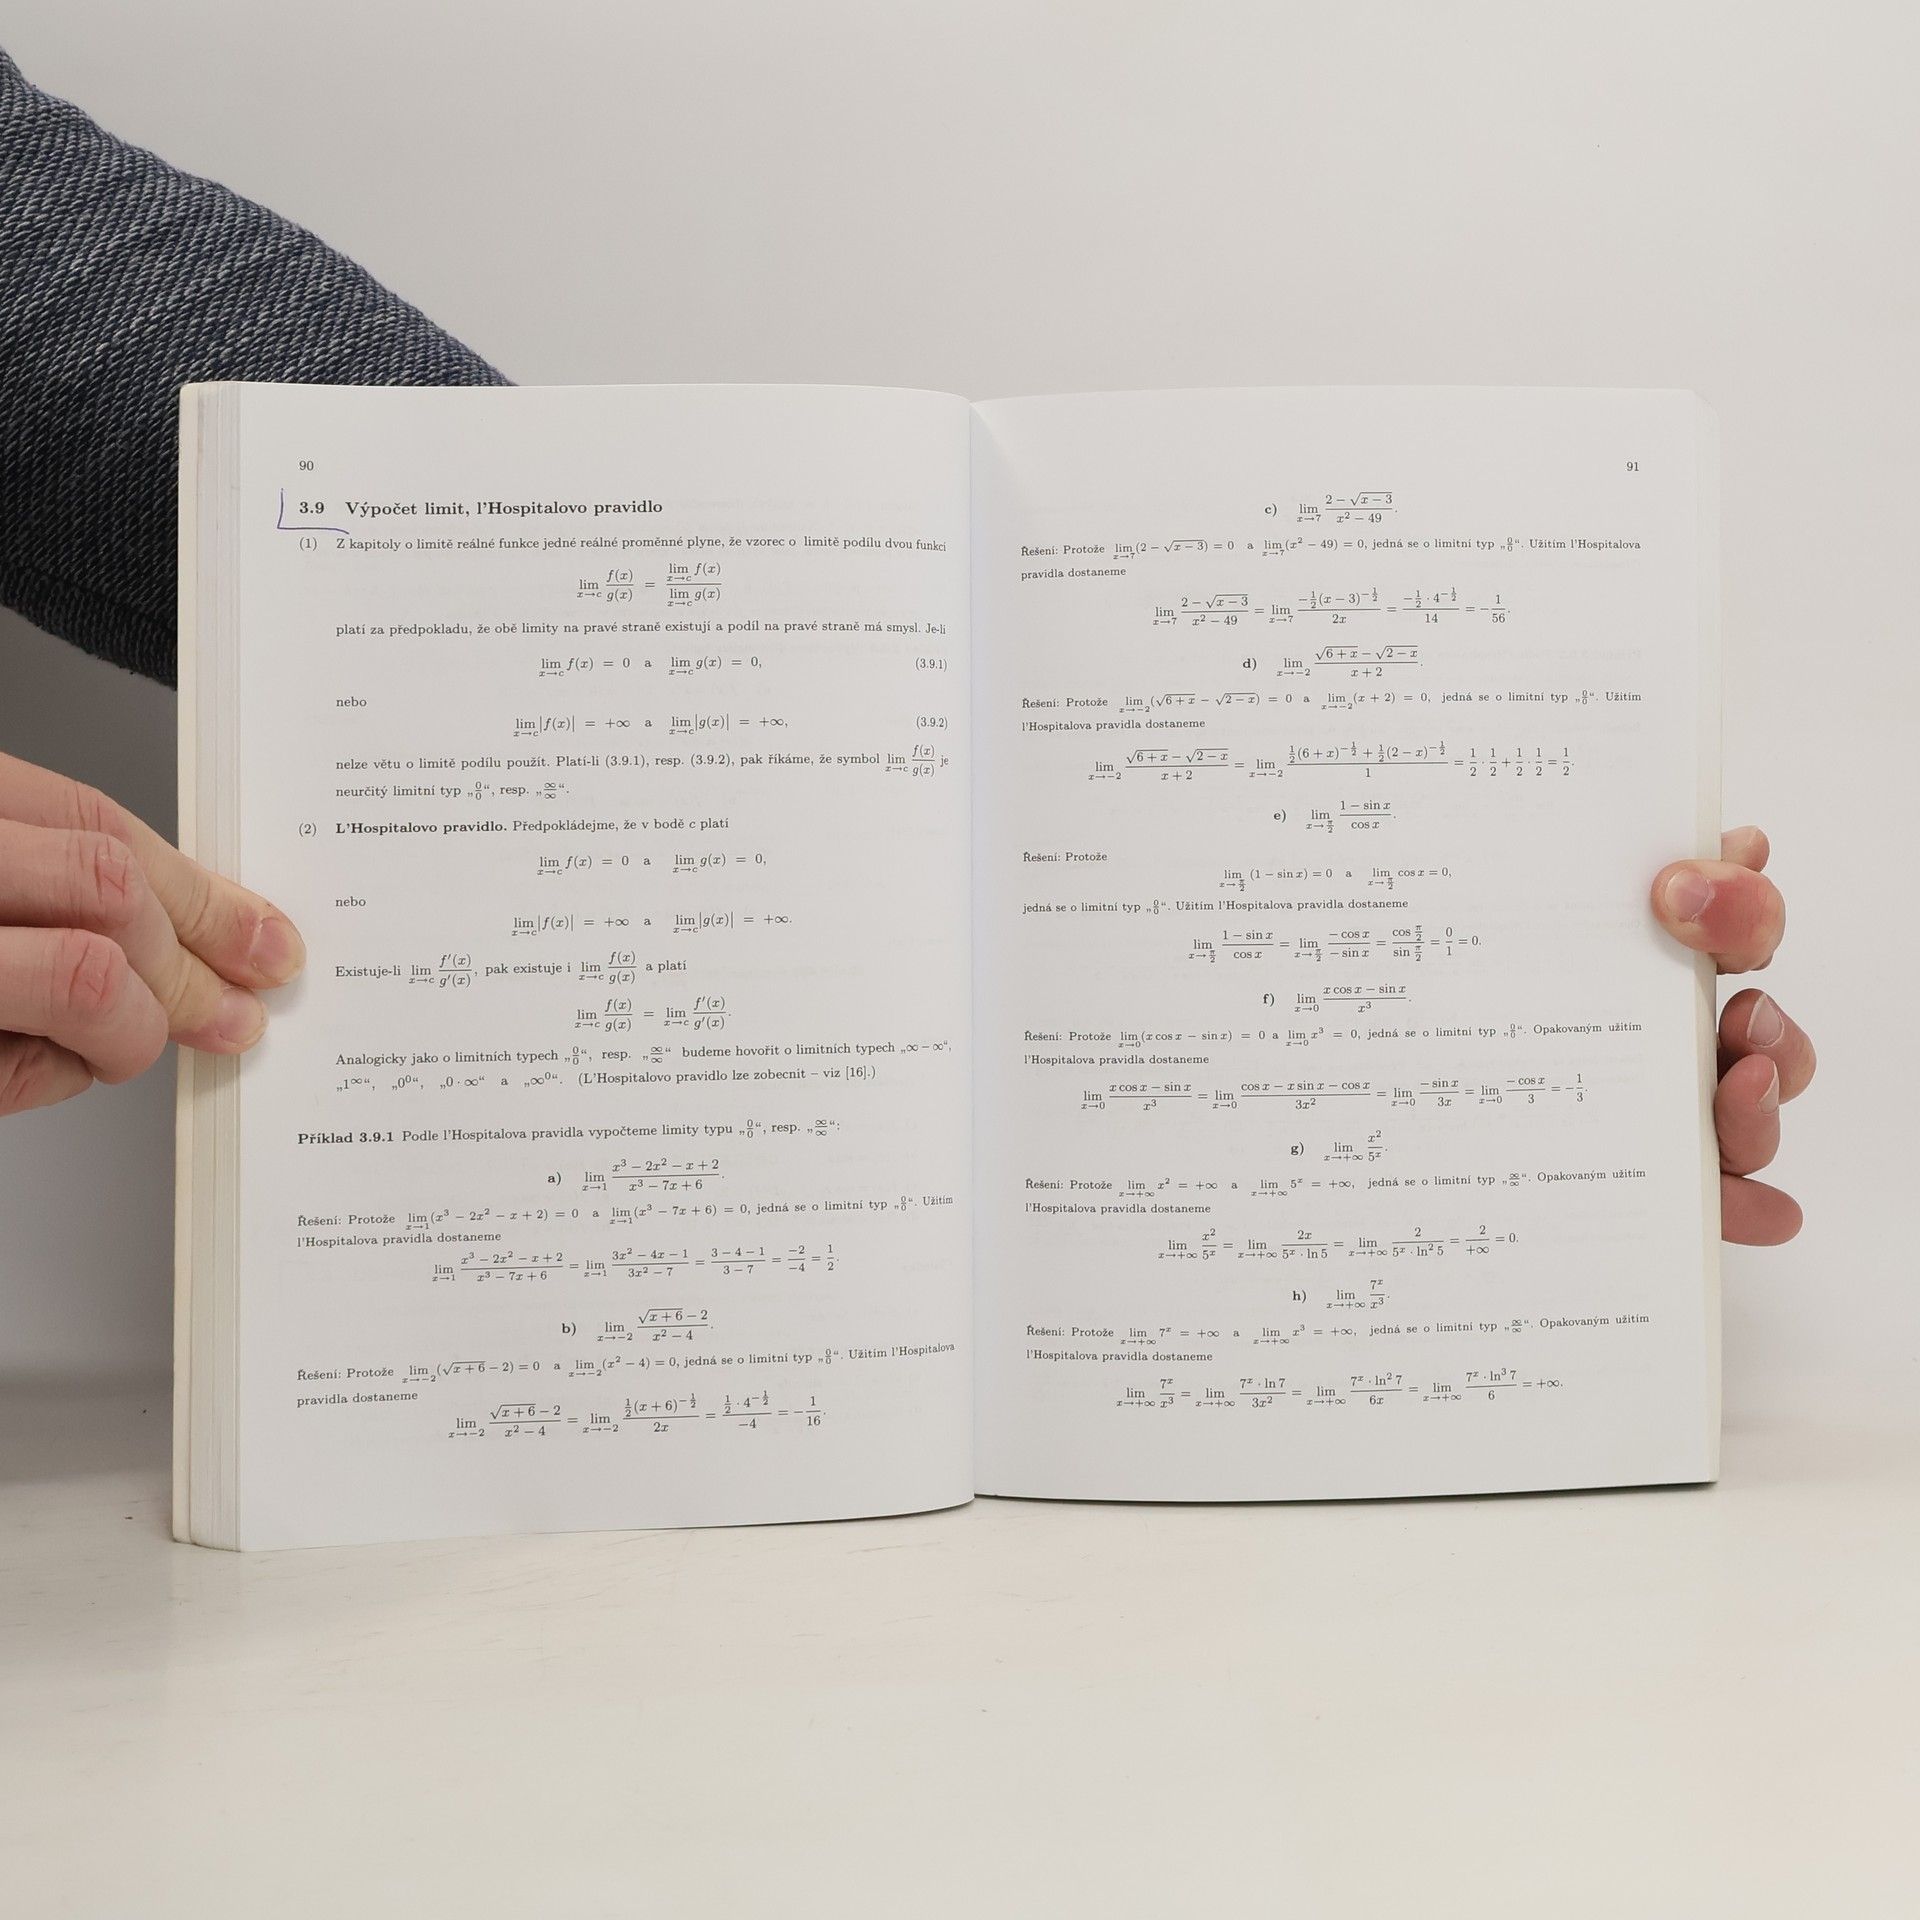 90
3.9 Výpočet limit, l'Hospitalovo pravidlo
(1) Z kapitoly o limitě reálné funkce jedné reálné proměnné plyne, že vzorec o limitě podílu dvou funkcí
lim_{x→c} f(x)/g(x) = lim_{x→c} f(x) / lim_{x→c} g(x)
platí za předpokladu, že obě limity na pravé straně existují a podíl na pravé straně má smysl. Je-li
lim_{x→c} f(x) = 0 a lim_{x→c} g(x) = 0, (3.9.1)
nebo
lim_{x→c} |f(x)| = +∞ a lim_{x→c} |g(x)| = +∞, (3.9.2)
nelze větu o limitě podílu použít. Platí-li (3.9.1), resp. (3.9.2), pak říkáme, že symbol lim_{x→c} f(x)/g(x) je
neurčitý limitní typ „0/0“, resp. „∞/∞“.
(2) L'Hospitalovo pravidlo. Předpokládejme, že v bodě c platí
lim_{x→c} f(x) = 0 a lim_{x→c} g(x) = 0,
nebo
lim_{x→c} |f(x)| = +∞ a lim_{x→c} |g(x)| = +∞.
Existuje-li lim_{x→c} f'(x)/g'(x), pak existuje i lim_{x→c} f(x)/g(x) a platí
lim_{x→c} f(x)/g(x) = lim_{x→c} f'(x)/g'(x).
Analogicky jako o limitních typech „0/0“, resp. „∞/∞“ budeme hovořit o limitních typech „∞ − ∞“,
„1^∞“, „0^0“, „0 · ∞“ a „∞^0“. (L'Hospitalovo pravidlo lze zobecnit – viz [16].)
Příklad 3.9.1 Podle l'Hospitalova pravidla vypočteme limity typu „0/0“, resp. „∞/∞“:
a) lim_{x→1} (x³ − 2x² − x + 2)/(x³ − 7x + 6).
Řešení: Protože lim_{x→1} (x³ − 2x² − x + 2) = 0 a lim_{x→1} (x³ − 7x + 6) = 0, jedná se o limitní typ „0/0“. Užitím
l'Hospitalova pravidla dostaneme
lim_{x→1} (x³ − 2x² − x + 2)/(x³ − 7x + 6) = lim_{x→1} (3x² − 4x − 1)/(3x² − 7) = (3 − 4 − 1)/(3 − 7) = −2/−4 = 1/2.
b) lim_{x→−2} (√(x + 6) − 2)/(x² − 4).
Řešení: Protože lim_{x→−2} (√(x + 6) − 2) = 0 a lim_{x→−2} (x² − 4) = 0, jedná se o limitní typ „0/0“. Užitím l'Hospitalova
pravidla dostaneme
lim_{x→−2} (√(x + 6) − 2)/(x² − 4) = lim_{x→−2} (½(x + 6)^{−½})/(2x) = (½ · 4^{−½})/(−4) = −1/16.
91
c) lim_{x→7} (2 − √(x − 3))/(x² − 49).
Řešení: Protože lim_{x→7} (2 − √(x − 3)) = 0 a lim_{x→7} (x² − 49) = 0, jedná se o limitní typ „0/0“. Užitím l'Hospitalova
pravidla dostaneme
lim_{x→7} (2 − √(x − 3))/(x² − 49) = lim_{x→7} (−½(x − 3)^{−½})/(2x) = (−½ · 4^{−½})/14 = −1/56.
d) lim_{x→−2} (√(6 + x) − √(2 − x))/(x + 2).
Řešení: Protože lim_{x→−2} (√(6 + x) − √(2 − x)) = 0 a lim_{x→−2} (x + 2) = 0, jedná se o limitní typ „0/0“. Užitím
l'Hospitalova pravidla dostaneme
lim_{x→−2} (√(6 + x) − √(2 − x))/(x + 2) = lim_{x→−2} (½(6 + x)^{−½} + ½(2 − x)^{−½})/1 = 1/2 · 1/2 + 1/2 · 1/2 = 1/2.
e) lim_{x→π/2} (1 − sin x)/cos x.
Řešení: Protože
lim_{x→π/2} (1 − sin x) = 0 a lim_{x→π/2} cos x = 0,
jedná se o limitní typ „0/0“. Užitím l'Hospitalova pravidla dostaneme
lim_{x→π/2} (1 − sin x)/cos x = lim_{x→π/2} (− cos x)/(− sin x) = (cos π/2)/(sin π/2) = 0/1 = 0.
f) lim_{x→0} (x cos x − sin x)/x³.
Řešení: Protože lim_{x→0} (x cos x − sin x) = 0 a lim_{x→0} x³ = 0, jedná se o limitní typ „0/0“. Opakovaným užitím
l'Hospitalova pravidla dostaneme
lim_{x→0} (x cos x − sin x)/x³ = lim_{x→0} (cos x − x sin x − cos x)/(3x²) = lim_{x→0} (− sin x)/(3x) = lim_{x→0} (− cos x)/3 = −1/3.
g) lim_{x→+∞} x²/5^x.
Řešení: Protože lim_{x→+∞} x² = +∞ a lim_{x→+∞} 5^x = +∞, jedná se o limitní typ „∞/∞“. Opakovaným užitím
l'Hospitalova pravidla dostaneme
lim_{x→+∞} x²/5^x = lim_{x→+∞} 2x/(5^x · ln 5) = lim_{x→+∞} 2/(5^x · ln² 5) = 2/+∞ = 0.
h) lim_{x→+∞} 7^x/x³.
Řešení: Protože lim_{x→+∞} 7^x = +∞ a lim_{x→+∞} x³ = +∞, jedná se o limitní typ „∞/∞“. Opakovaným užitím
l'Hospitalova pravidla dostaneme
lim_{x→+∞} 7^x/x³ = lim_{x→+∞} (7^x · ln 7)/(3x²) = lim_{x→+∞} (7^x · ln² 7)/(6x) = lim_{x→+∞} (7^x · ln³ 7)/6 = +∞.